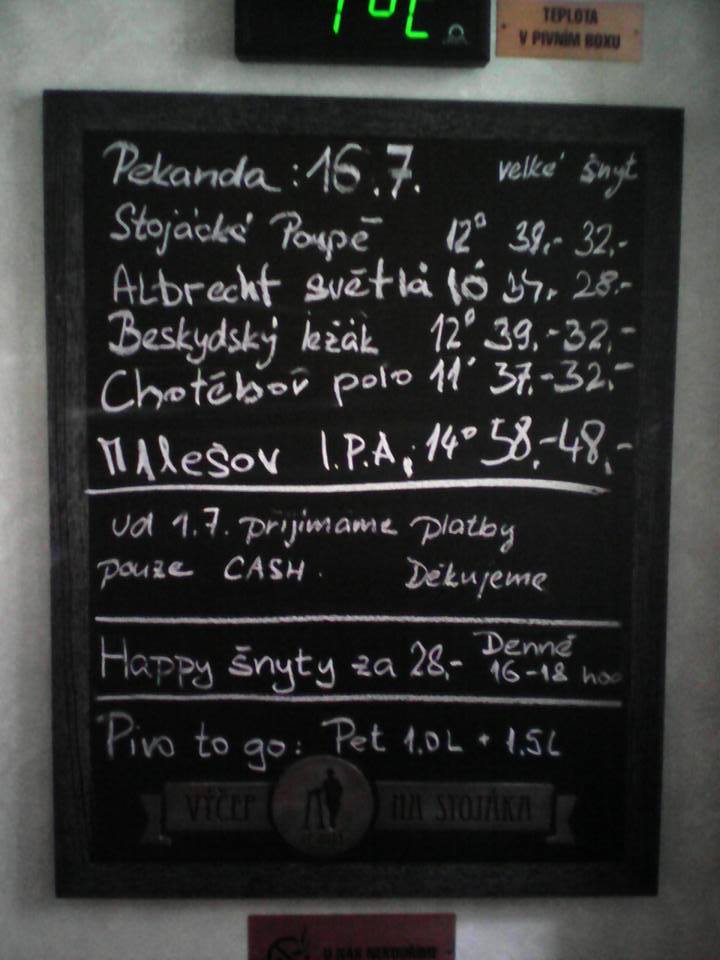 TEPLOTA
V PIVNÍM BOXU
Pekanda : 16.7. velké šnyt
Stojácké Poupě 12° 39,- 32,-
Albrecht světlá 10 34,- 28,-
Beskydský ležák 12° 39,- 32,-
Chotěboř polo 11° 37,- 32,-
Malešov I.P.A. 14° 58,- 48,-
od 1.7. přijímáme platby
pouze CASH. Děkujeme
Happy šnyty za 28,- Denně
16-18 hod
Pivo to go: Pet 1.0L + 1.5L
VÝČEP NA STOJÁKA
U NÁS NEKOUŘÍME